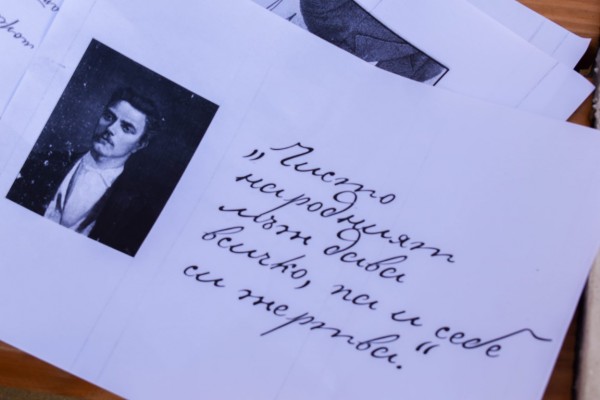 „Чисто
народният
мъж дава
всичко, па и себе
си жертва.“